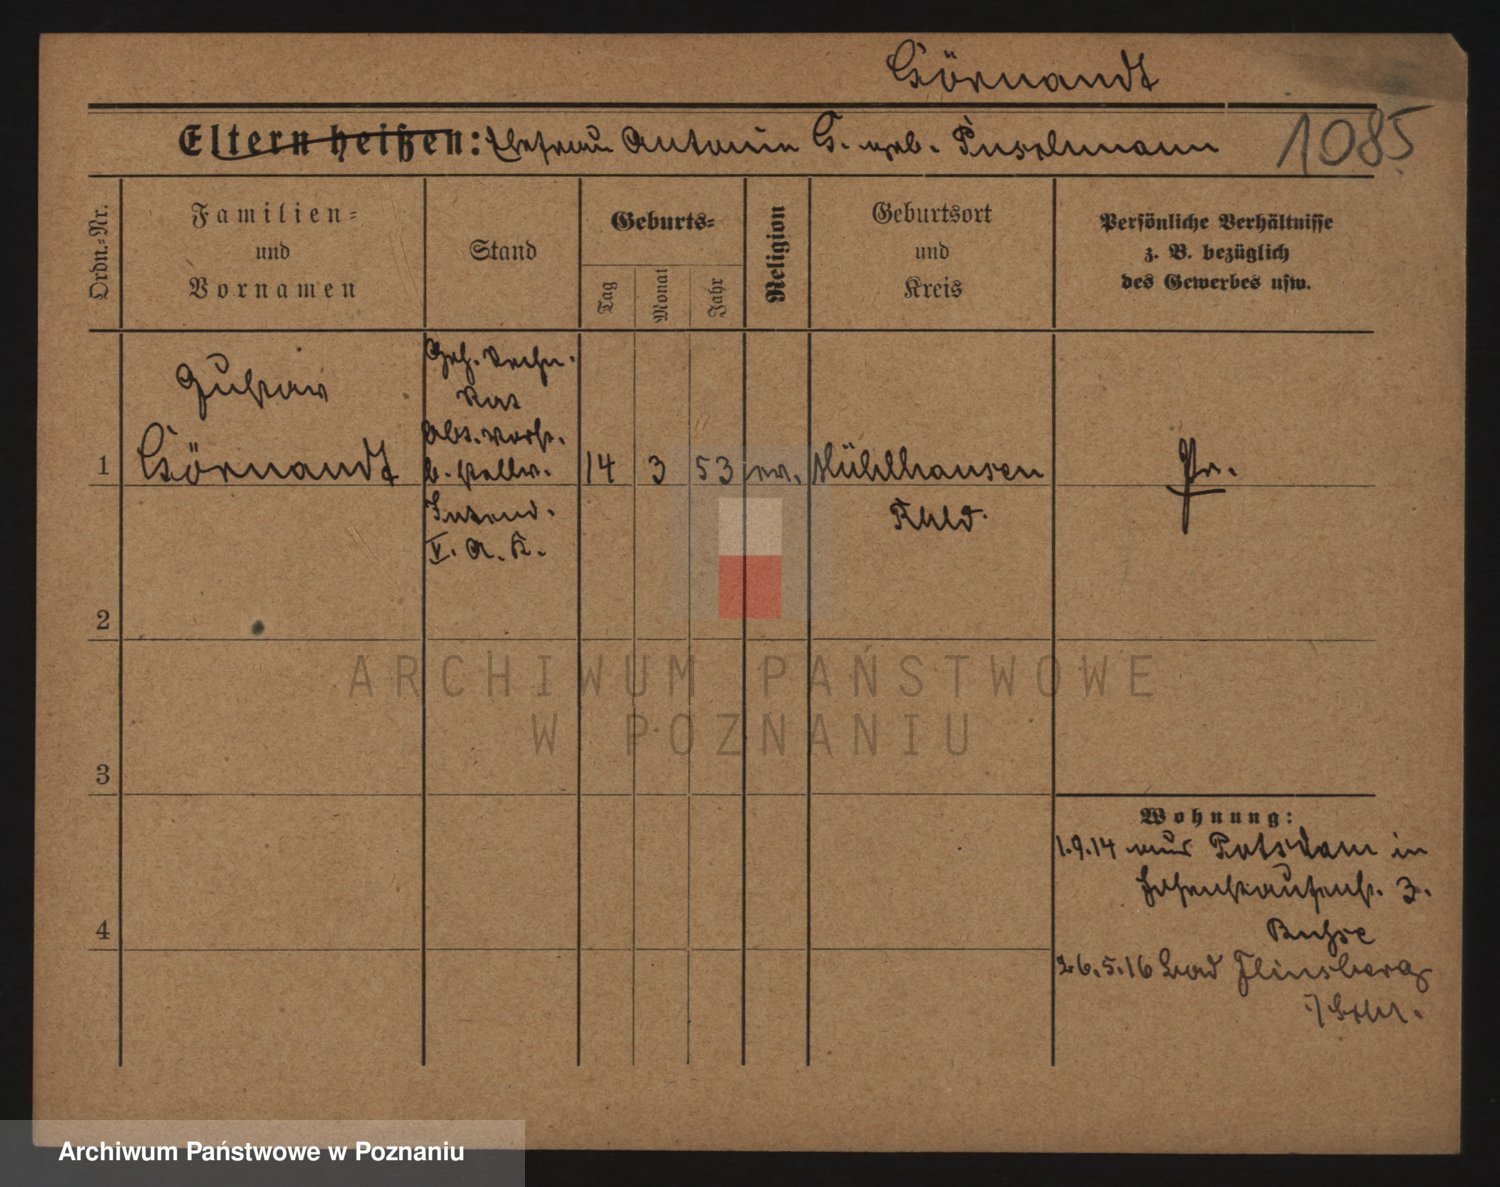 Görnandt
Eltern heißen: Ehefrau Antonie G. geb. Puselmann
1085
Ordn.-Nr.
Familien-
und
Vornamen
Stand
Geburts-
Tag
Monat
Jahr
Religion
Geburtsort
und
Kreis
Persönliche Verhältnisse
z. B. bezüglich
des Gewerbes usw.
1
Gustav
Görnandt
Geh. Rechn.
Rat
Abt. Vorst.
b. stellv.
Intend.
V. A. K.
14
3
53
ev.
Mühlhausen
Pr.
2
3
4
Wohnung:
1.9.14 aus Potsdam in
Hohenstaufenstr. 3.
Buhse
26.5.16 Bad Flinsberg
i/Schl.
ARCHIWUM PAŃSTWOWE
W POZNANIU
Archiwum Państwowe w Poznaniu